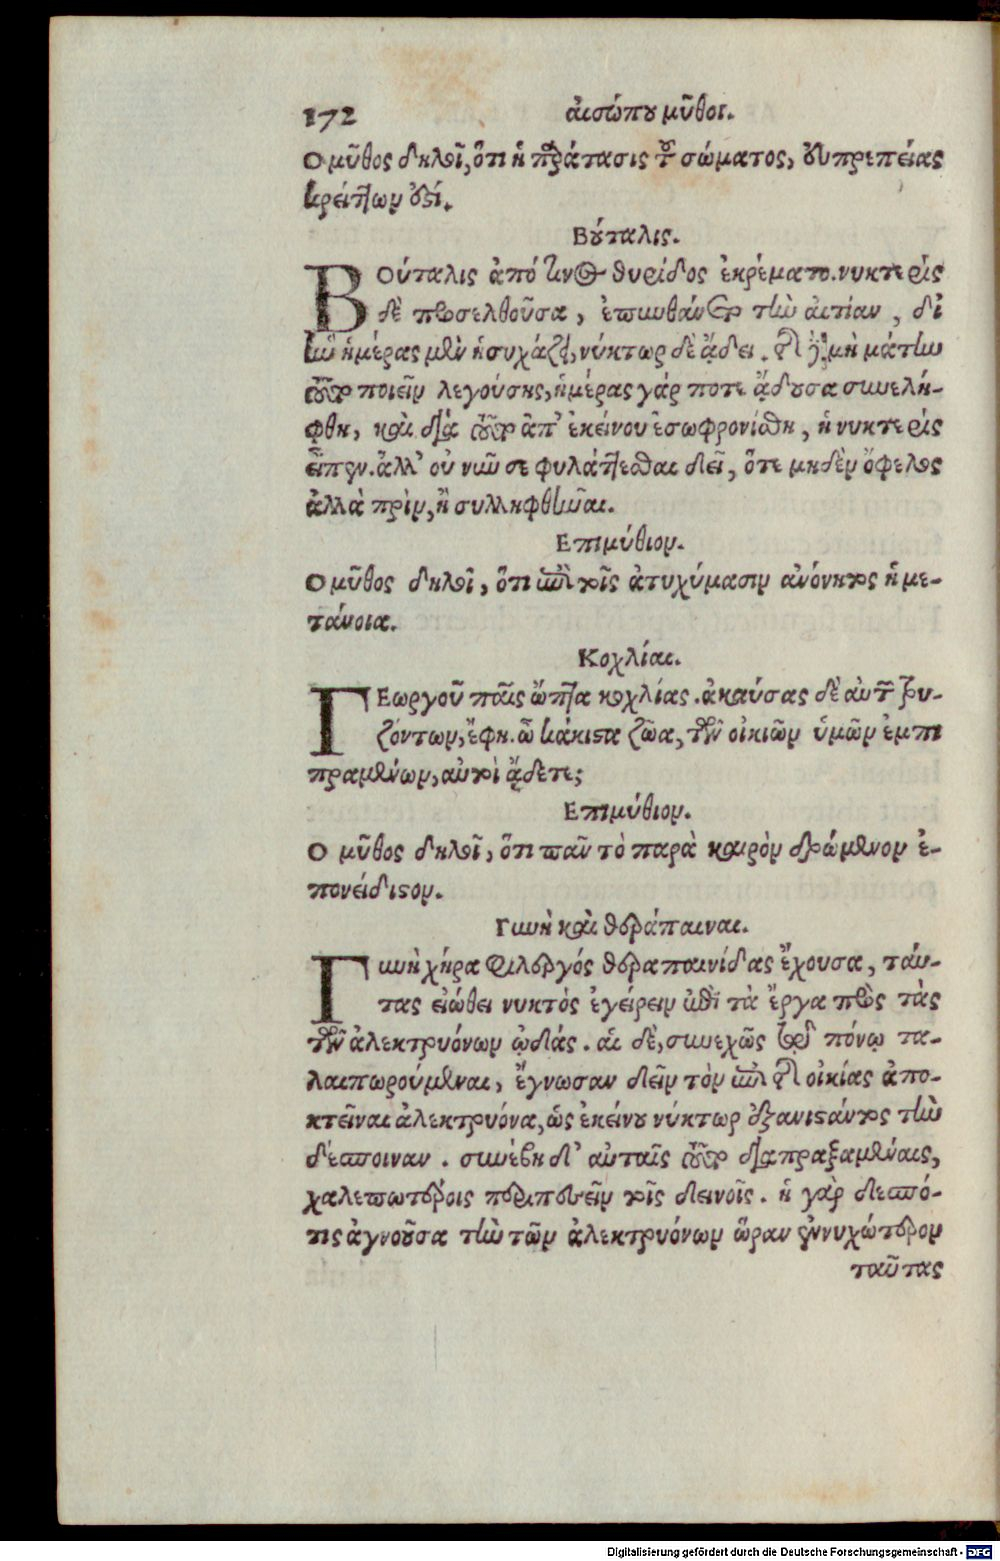 172 αἰσώπου μῦθοι.
Ο μῦθος δηλοῖ, ὅτι ἡ πράτασις τοῦ σώματος, εὐπρεπείας
κρείττων ἐστί.
Βούταλις.
Βούταλις ἀπό τινος θυρίδος ἐκρέματο. νυκτερὶς
δὲ προσελθοῦσα, ἐπυνθάνετο τὴν αἰτίαν, δι
ἣν ἡμέρας μὲν ἡσυχάζει, νύκτωρ δὲ ᾄδει. τῆς δὲ μὴ μάτην
τοῦτο ποιεῖν λεγούσης, ἡμέρας γάρ ποτε ᾄδουσα συνελή-
φθη, καὶ διὰ τοῦτο ἀπ' ἐκείνου ἐσωφρονίσθη, ἡ νυκτερὶς
εἶπεν. ἀλλ' οὐ νῦν σε φυλάττεσθαι δεῖ, ὅτε μηδὲν ὄφελος
ἀλλὰ πρὶν, ἢ συλληφθῆναι.
Επιμύθιον.
Ο μῦθος δηλοῖ, ὅτι ἐπὶ τοῖς ἀτυχήμασιν ἀνόνητος ἡ με-
τάνοια.
Κοχλίαι.
Γεωργοῦ παῖς ὤπτα κοχλίας. ἀκούσας δὲ αὐτῶν τρυ-
ζόντων, ἔφη. ὦ κάκιστα ζῶα, τῶν οἰκιῶν ὑμῶν ἐμπι
πραμένων, αὐτοὶ ᾄδετε;
Επιμύθιον.
Ο μῦθος δηλοῖ, ὅτι πᾶν τὸ παρὰ καιρὸν δρώμενον ἐ-
πονείδιστον.
Γυνὴ καὶ θεράπαιναι.
Γυνὴ χήρα φιλεργός θεραπαινίδας ἔχουσα, ταύ-
τας εἰώθει νυκτὸς ἐγείρειν ἐπὶ τὰ ἔργα πρὸς τὰς
τῶν ἀλεκτρυόνων ᾠδάς. αἱ δὲ, συνεχῶς τῷ πόνῳ τα-
λαιπωρούμεναι, ἔγνωσαν δεῖν τὸν ἐπὶ τῆς οἰκίας ἀπο-
κτεῖναι ἀλεκτρυόνα, ὡς ἐκείνου νύκτωρ ἐξανιστάντος τὴν
δέσποιναν. συνέβη δ' αὐταῖς τοῦτο διαπραξαμέναις,
χαλεπωτέροις περιπεσεῖν τοῖς δεινοῖς. ἡ γὰρ δεσπό-
τις ἀγνοοῦσα τὴν τῶν ἀλεκτρυόνων ὥραν ἐννυχώτερον
ταύτας
Digitalisierung gefördert durch die Deutsche Forschungsgemeinschaft - DFG